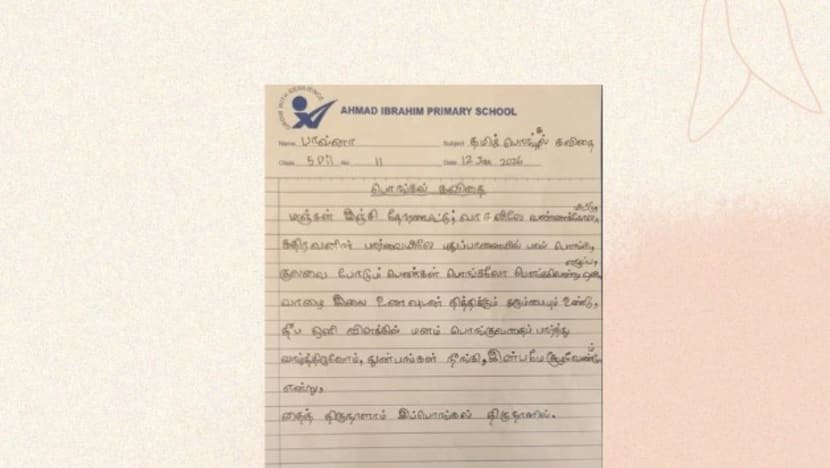 GROW WITH RESILIENCE
AHMAD IBRAHIM PRIMARY SCHOOL
Name பாவ்னா Subject தமிழ் பொங்கல் கவிதை
Class 5 No 11 Date 12 Jan 2026
பொங்கல் கவிதை
மஞ்சள் இஞ்சி தோரணகட்டு, வாசலிலே வண்ணக்கோல
கதிரவனின் பார்வையிலே புதுப்பானையில் பால் பொங்க,
எழுப்ப,
குலவை போடும் பெண்கள் பொங்கலோ பொங்கலென்று
வாழை இலை உணவுடன் தித்திக்கும் கரும்பையும் உண்டு,
தீப ஒளி விளக்கில் மனம் பொங்குவதைப் பார்த்து
வாழ்த்திடுவோம், துன்பங்கள் நீங்கி, இன்பமே சூழவேண்டும்
என்று,
தைத் திருநாளாம் இப்பொங்கல் திருநாளில்.